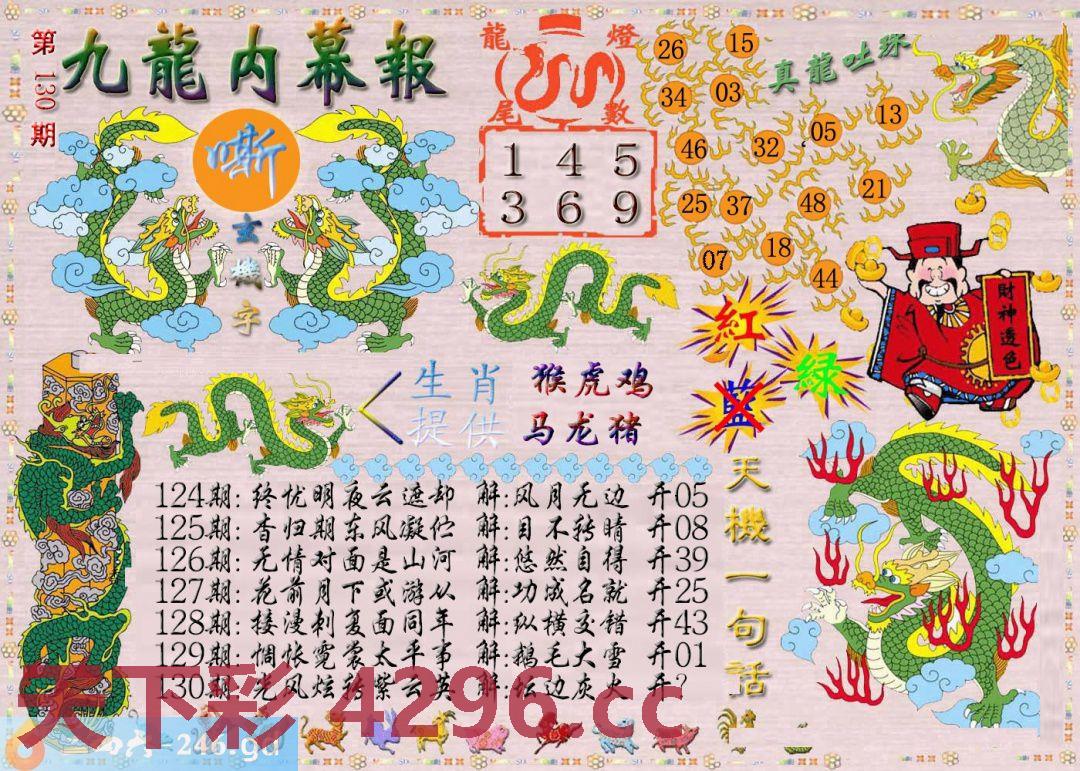 第130期
九龍内幕報
嘶
玄機字
龍燈
尾數
1 4 5
3 6 9
真龍吐珠
26 15
34 03
46 32 05 13
25 37 48 21
07 18 44
財神透色
紅
綠
藍
生肖 猴虎鸡
提供 马龙猪
天機一句話
124期: 终忧明夜云遮却 解:风月无边 开05
125期: 杳归期东风凝伫 解:目不转睛 开08
126期: 无情对面是山河 解:悠然自得 开39
127期: 花前月下或游从 解:功成名就 开25
128期: 接漫刺复面同年 解:纵横交错 开43
129期: 惆怅霓裳太平事 解:鹅毛大雪 开01
130期: 先风炫转紫云英 解:坛边灰火 开?
天下彩 4296.cc
=246.gd